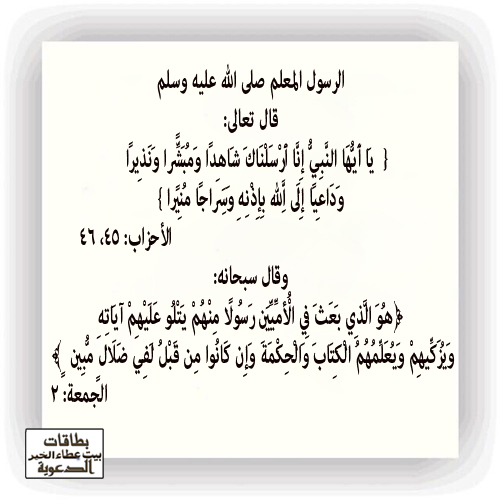 الرسول المعلم صلى الله عليه وسلم
قال تعالى:
{ يَا أَيُّهَا النَّبِيُّ إِنَّا أَرْسَلْنَاكَ شَاهِدًا وَمُبَشِّرًا وَنَذِيرًا
وَدَاعِيًا إِلَى اللَّهِ بِإِذْنِهِ وَسِرَاجًا مُنِيرًا }
الأحزاب: ٤٥، ٤٦
وقال سبحانه:
﴿هُوَ الَّذِي بَعَثَ فِي الْأُمِّيِّينَ رَسُولًا مِنْهُمْ يَتْلُو عَلَيْهِمْ آيَاتِهِ
وَيُزَكِّيهِمْ وَيُعَلِّمُهُمُ الْكِتَابَ وَالْحِكْمَةَ وَإِن كَانُوا مِن قَبْلُ لَفِي ضَلَالٍ مُّبِينٍ ﴾
الجمعة: ٢
بطاقات
بيت عطاء الخير
الدعوية